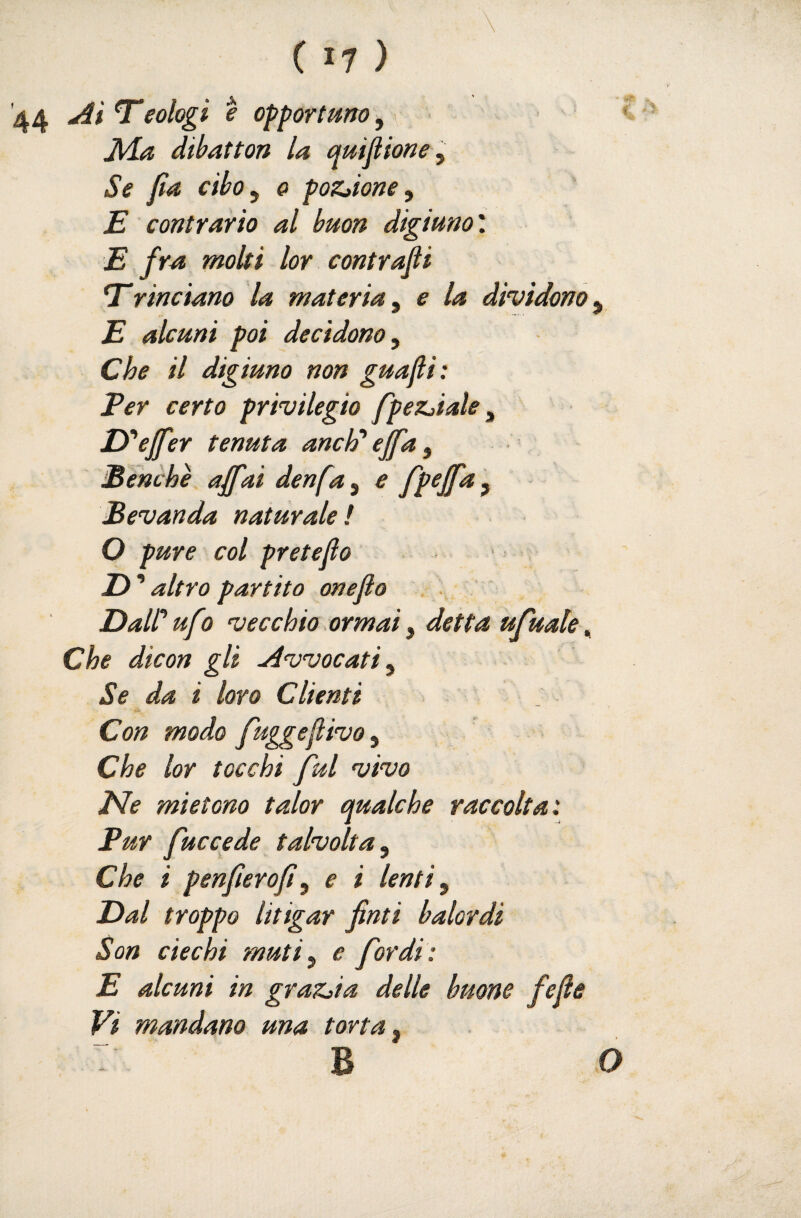 ( 17 )
44 Ai Teologi è opportuno,
Ma dibatton la quiſtione,
Se ſia cibo, o pozione,
E contrario al buon digiuno:
E fra molti lor contraſti
Trinciano la materia, e la dividono,
E alcuni poi decidono,
Che il digiuno non guaſti:
Per certo privilegio ſpeziale,
D'eſſer tenuta anch' eſſa,
Benchè aſſai denſa, e ſpeſſa,
Bevanda naturale!
O pure col preteſto
D' altro partito oneſto
Dall' uſo vecchio ormai, detta uſuale,
Che dicon gli Avvocati,
Se da i loro Clienti
Con modo ſuggeſtivo,
Che lor tocchi ſul vivo
Ne mietono talor qualche raccolta:
Pur ſuccede talvolta,
Che i penſieroſi, e i lenti,
Dal troppo litigar finti balordi
Son ciechi muti, e ſordi:
E alcuni in grazia delle buone feſte
Vi mandano una torta,
B O